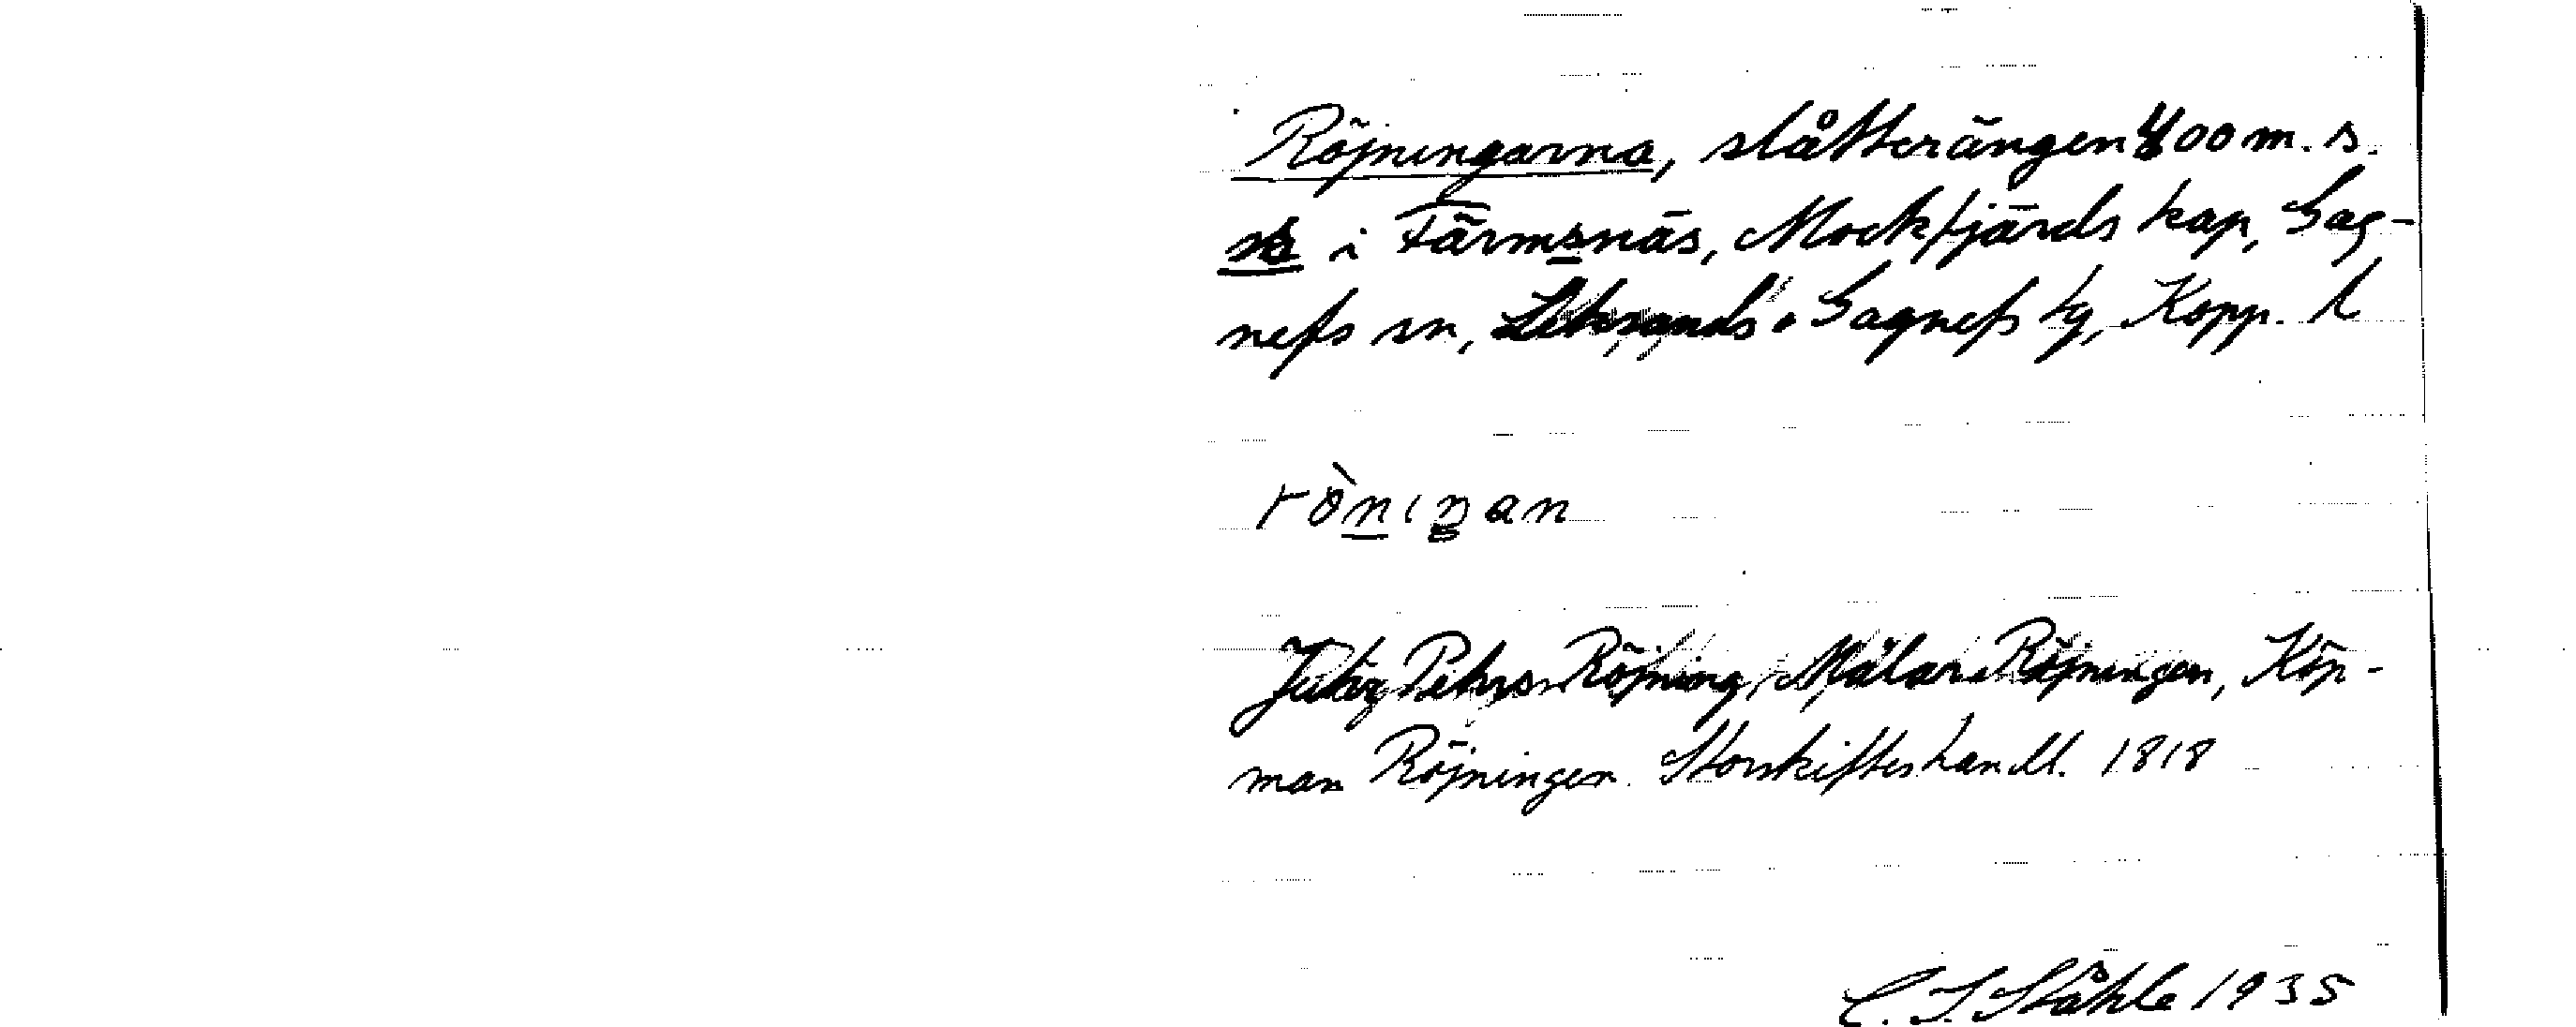 Röjningarna, slåtterängen 400 m. s.
sk i Färmsnäs, Mockfjärds kap, Gag-
nefs sn, Leksands o Gagnefs tg, Kopp. l
rò̈niŋan
Pehrs Röjning, Målar Röjningen, Köp-
man Röjningen. Storskifteshandl. 1818
C. I. Ståhle 1935